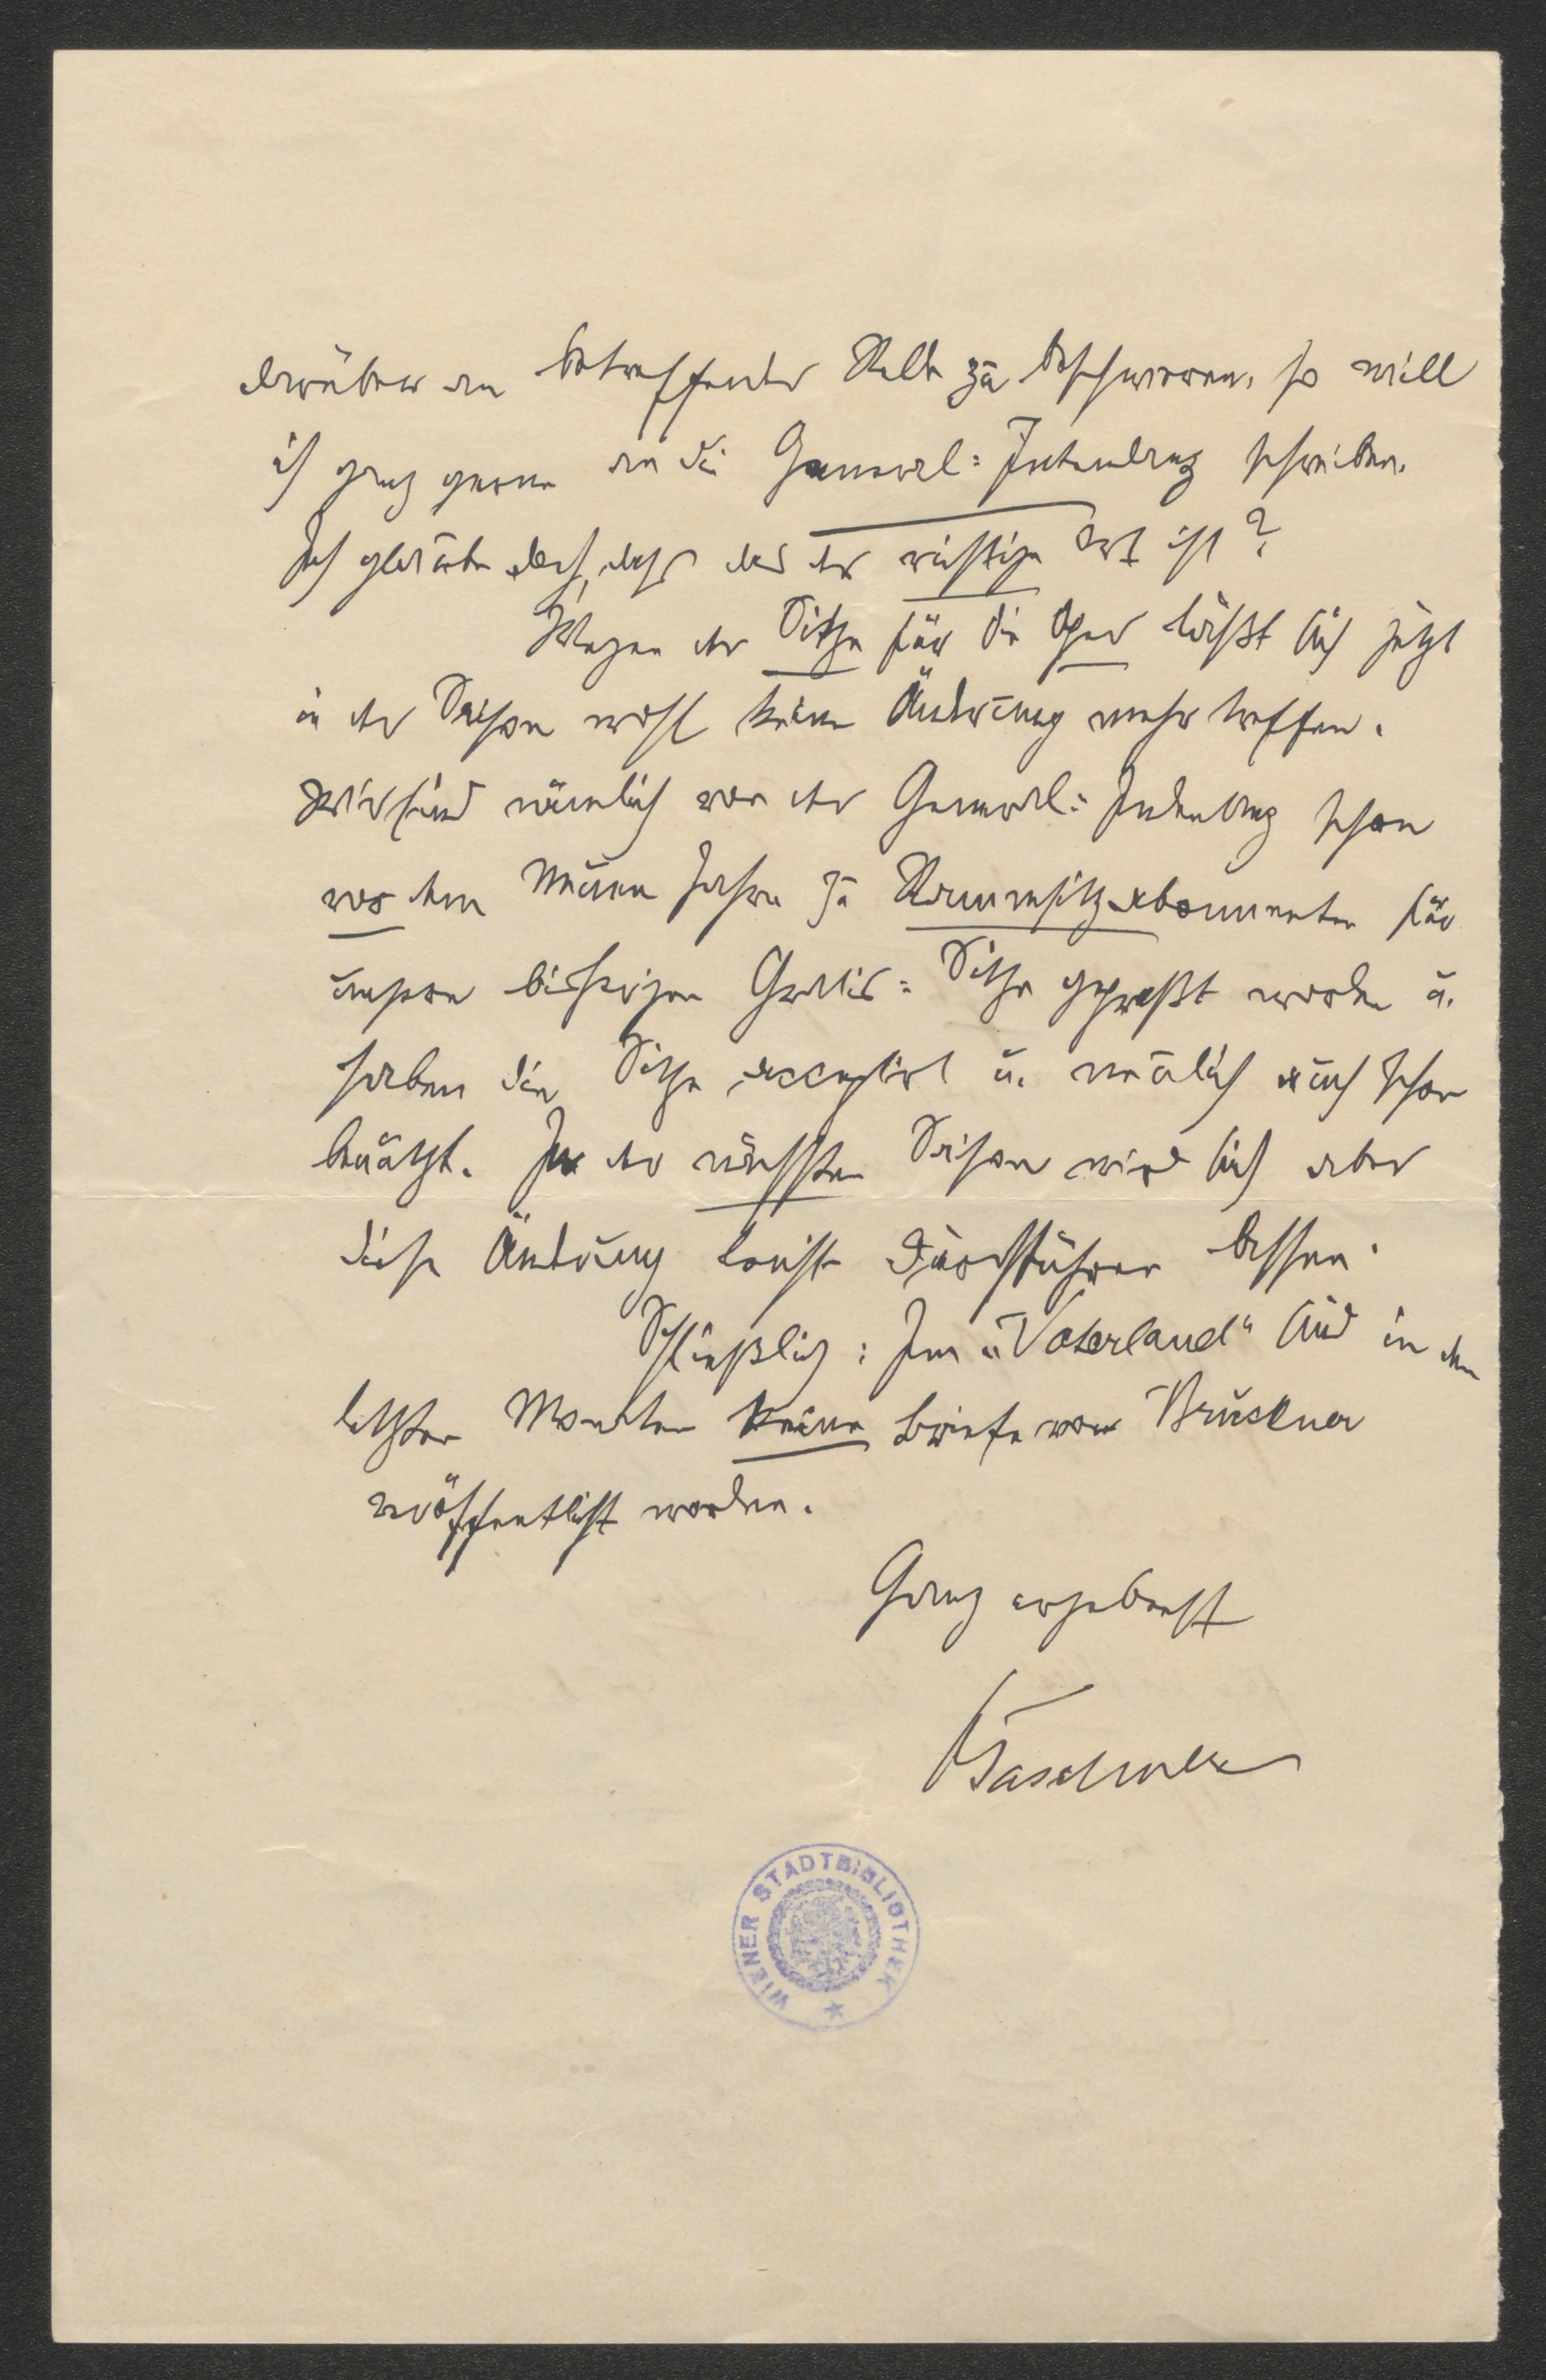 darüber an betreffender Stelle zu beschweren, so will
ich ganz gerne an die General-Intendanz schreiben.
Ich glaube doch, dass das der richtige Ort ist?
Wegen der Sitze für die Oper läßt sich jetzt
in der Saison wohl keine Änderung mehr treffen.
Wir sind nämlich von der General-Intendanz schon
vor dem neuen Jahre zu Stammsitzabonnenten für
unsere bisherigen Gratis-Sitze gepreßt worden u.
haben die Sitze acceptirt u. neulich auch schon
benützt. In der nächsten Saison wird sich aber
diese Änderung leicht durchführen lassen.
Schließlich: Im „Vaterland“ sind in den
letzten Monaten keine Briefe von Bruckner
veröffentlicht worden.
Ganz ergebenst
WIENER STADTBIBLIOTHEK